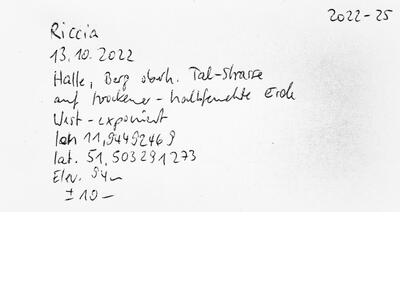 2022-25
Riccia
13.10.2022
Halle, Berg oberh. Tal-Strasse
auf trockener-halbfeuchte Erde
West-exponiert
lon 11,94492469
lat. 51,503291273
Elev. 94m
±10m